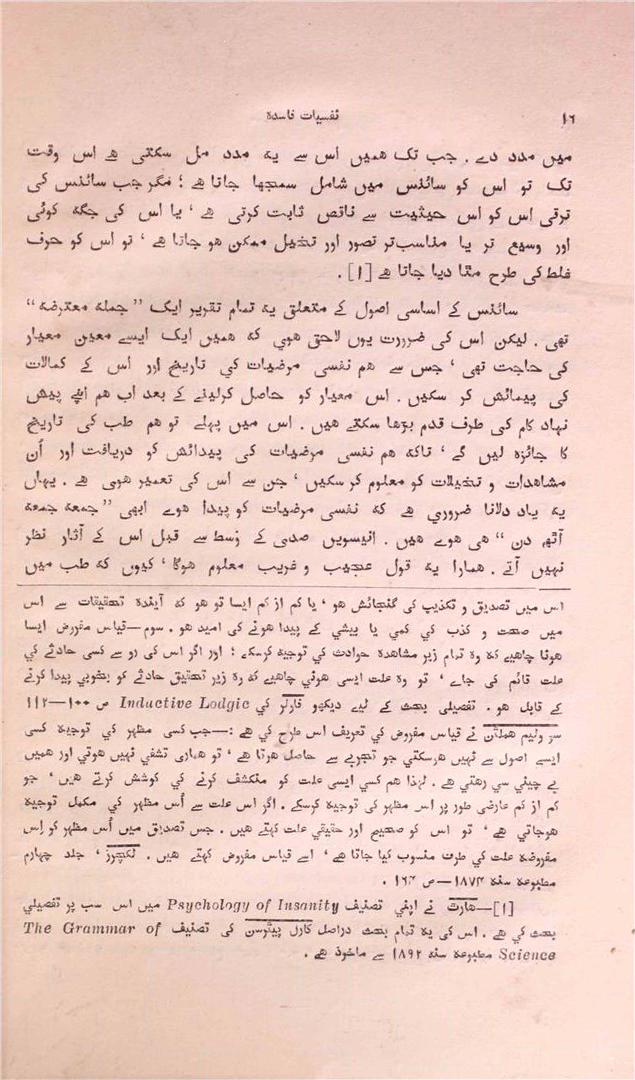 ۱۶
نفسیات فاسدہ
میں مدد دے ۔ جب تک ھمیں اس سے یہ مدد مل سکتی ھے اس وقت
تک تو اس کو سائنس میں شامل سمجھا جاتا ھے ؛ مگر جب سائنس کی
ترقی اس کو اس حیثیت سے ناقص ثابت کرتی ھے ، یا اس کی جگہ کوئی
اور وسیع تر یا مناسب تر تصور اور تخیل ممکن ھو جاتا ھے ، تو اس کو حرف
غلط کی طرح مٹا دیا جاتا ھے [۱] ۔
سائنس کے اساسی اصول کے متعلق یہ تمام تقریر ایک ”جملہ معترضہ“
تھی ۔ لیکن اس کی ضرورت یوں لاحق ھوی کہ ھمیں ایک ایسے معین معیار
کی حاجت تھی ، جس سے ھم نفسی مرضیات کي تاریخ اور اس کے کمالات
کی پیمائش کر سکیں ۔ اس معیار کو حاصل کرلینے کے بعد اب ھم اپنے پیش
نہاد کام کی طرف قدم بڑھا سکتے ھیں ۔ اس میں پہلے تو ھم طب کی تاریخ
کا جائزہ لیں گے ، تاکہ ھم نفسی مرضیات کی پیدائش کو دریافت اور اُن
مشاھدات و تخیلات کو معلوم کر سکیں ، جن سے اس کی تعمیر ھوی ھے ۔ یہاں
یہ یاد دلانا ضروري ھے کہ نفسی مرضیات کو پیدا ھوے ابھی ”جمعہ جمعہ
آٹھ دن“ ھی ھوے ھیں ۔ انیسویں صدی کے وسط سے قبل اس کے آثار نظر
نہیں آتے ۔ ھمارا یہ قول عجیب و غریب معلوم ھوگا ، کیوں کہ طب میں
اس میں تصدیق و تکذیب کی گنجائش ھو ، یا کم از کم ایسا تو ھو کہ آیندہ تحقیقات سے اس
میں صحت و کذب کي کمي یا بیشی کے پیدا ھونے کی امید ھو ۔ سوم—قیاس مفروض ایسا
ھونا چاھیے کہ وہ تمام زیر مشاھدہ حوادث کي توجیہ کرسکے ؛ اور اگر اس کی رو سے کسی حادثے کي
علت قائم کی جاے ، تو وہ علت ایسی ھونی چاھیے کہ وہ زیر تحقیق حادثے کو بخوبي پیدا کرنے
کے قابل ھو ۔ تفصیلی بحث کے لیے دیکھو فارلر کي Inductive Lodgic ص ۱۰۰—۱۱۲
سر ولیم ھملٹن نے قیاس مفروض کی تعریف اس طرح کي ھے :—جب کسی مظہر کي توجیہ کسی
ایسے اصول سے نہیں ھرسکتي جو تجربے سے حاصل ھوتا ھے ، تو ھماری تشفي نہیں ھوتی اور ھمیں
بے چیني سي رھتي ھے ۔ لہذا ھم کسي ایسی علت کو منکشف کرنے کي کوشش کرتے ھیں ، جو
کم از کم عارضی طور پر اس مظہر کی توجیہ کرسکے ۔ اگر اس علت سے اُس مظہر کي مکمل توجیہ
ھوجاتي ھے ، تو اس کو صحیح اور حقیقي علت کہتے ھیں ۔ جس تصدیق میں اُس مظہر کو اِس
مفروضہ علت کي طرف منسوب کیا جاتا ھے ، اسے قیاس مفروض کہتے ھیں ۔ لکچرز ، جلد چہارم
مطبوعہ سنہ ۱۸۷۴—ص ۱۶۴ ۔
[۱]—ھارٹ نے اپني تصنیف Psychology of Insanity میں اس سب پر تفصیلي
بحث کي ھے ۔ اس کی یہ تمام بحث دراصل کارل پیئرسن کی تصنیف The Grammar of
Science مطبوعہ سنہ ۱۸۹۲ سے ماخوذ ھے ۔